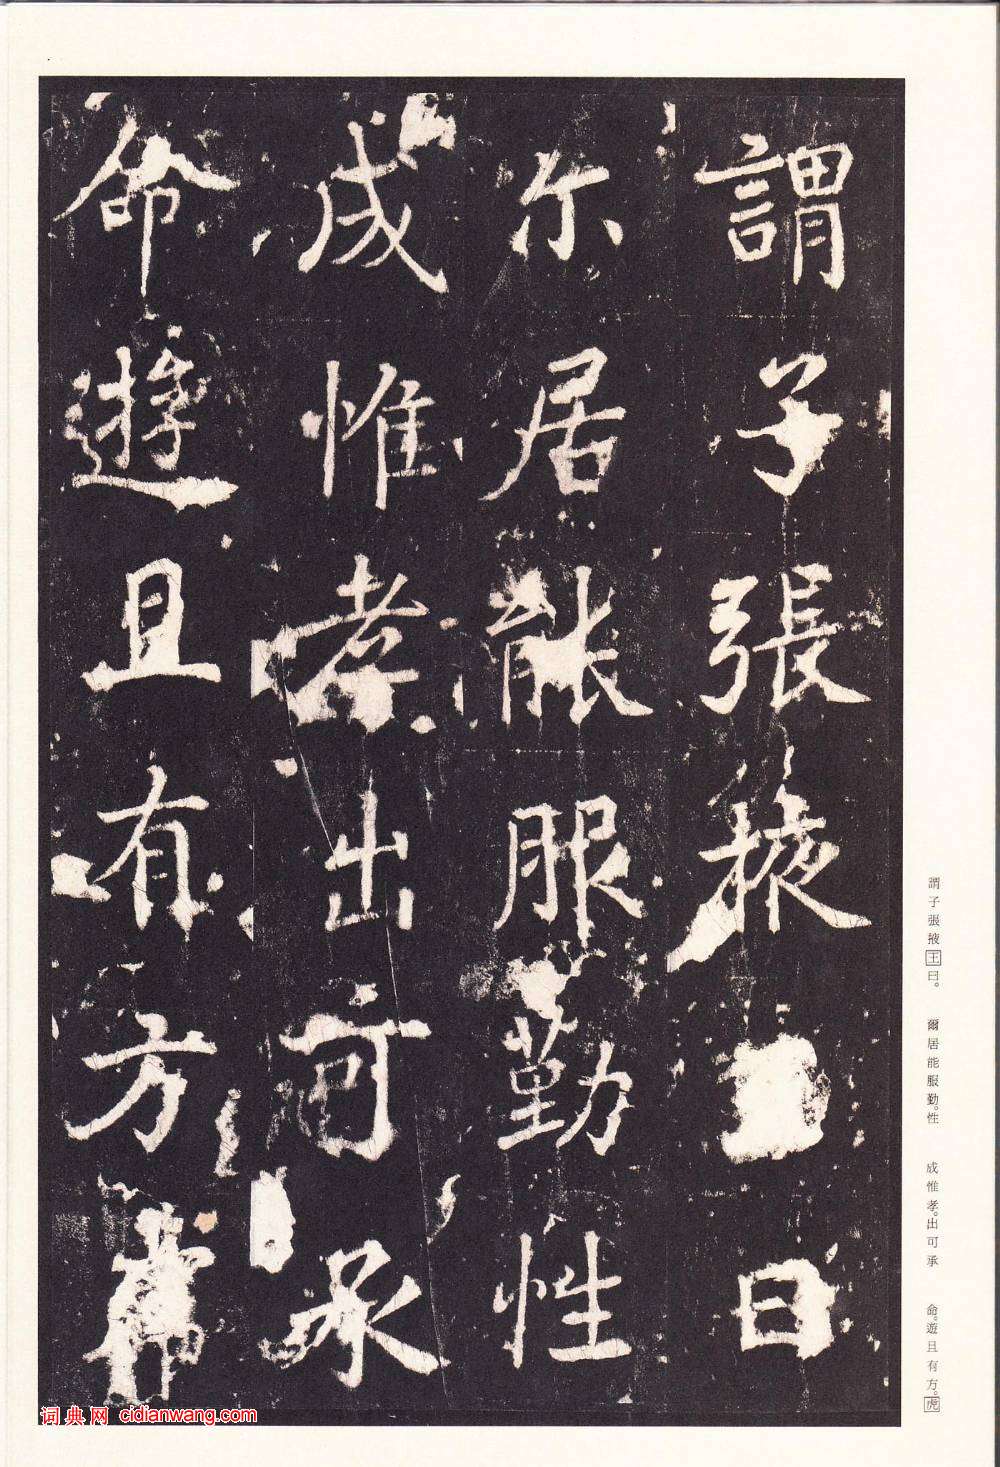 謂子張掖曰
尓居能服勤性
成惟孝出可承
命遊且有方
謂子張掖王曰。 爾居能服勤。性 成惟孝。出可承 命。遊且有方。虎
词典网 cidianwang.com